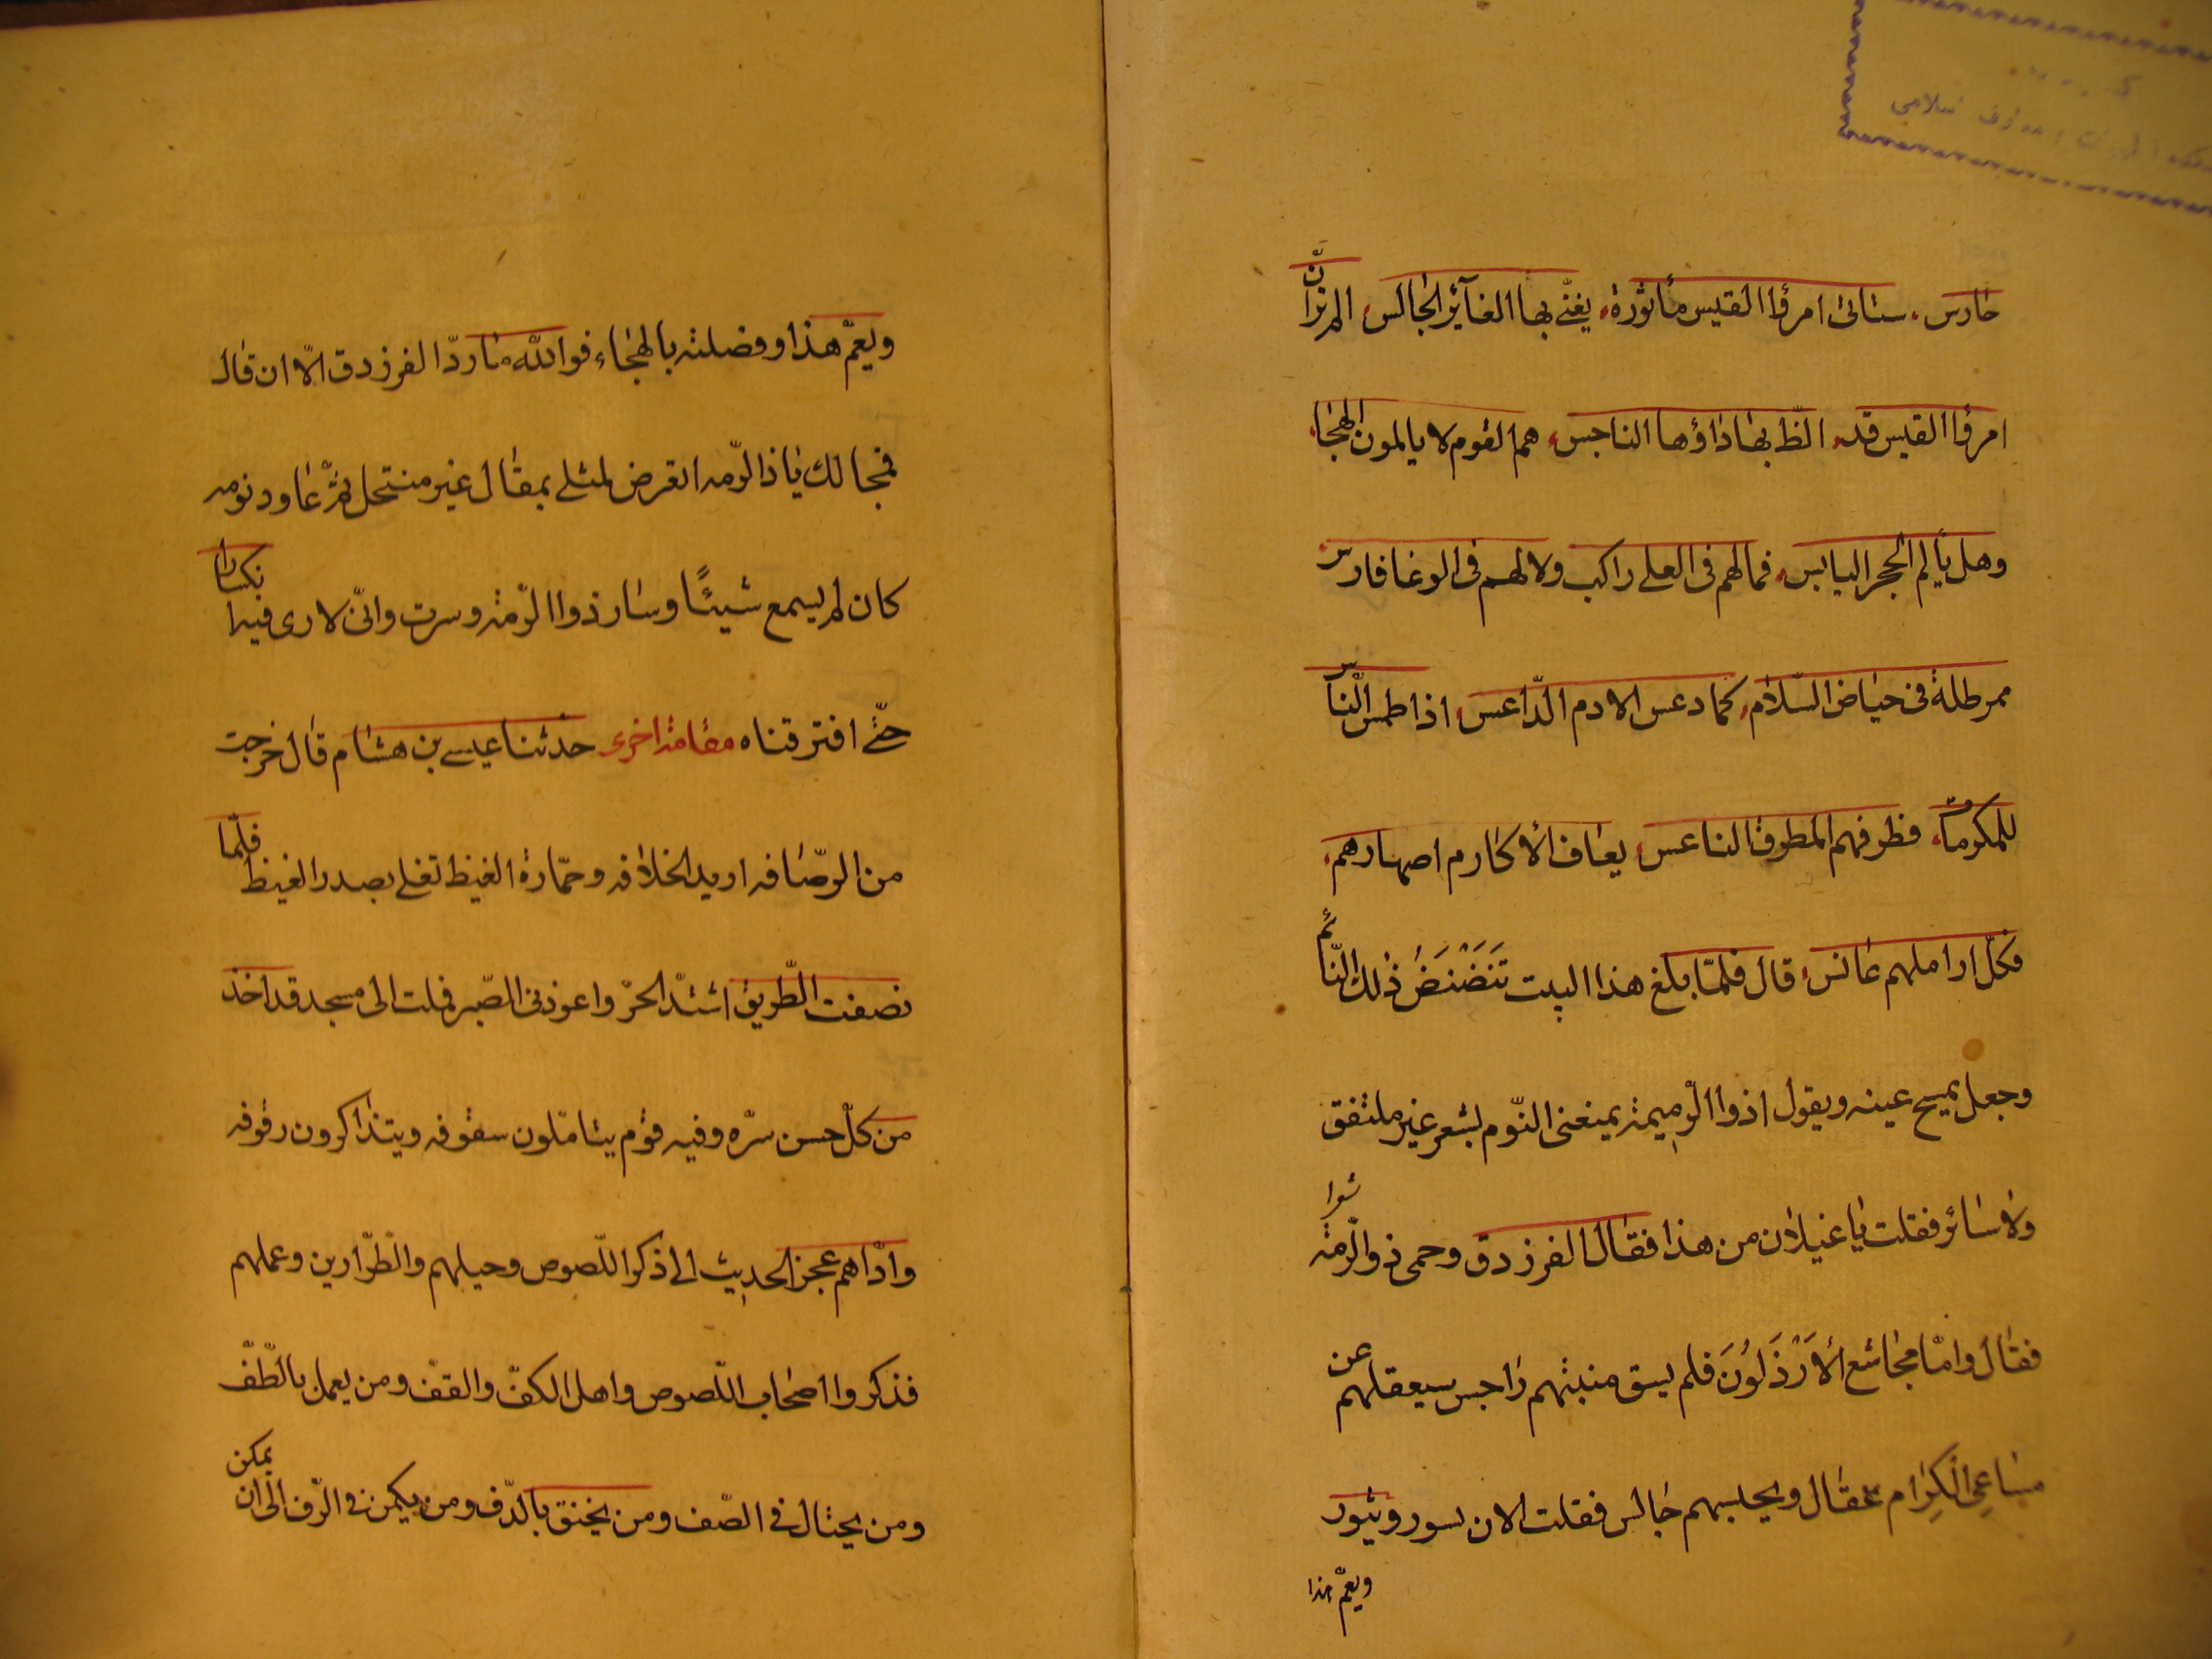 حارس ستاتى امرؤا القيس مأثورة يغنّى بها الغآئر الجالس المرترانّ
امرؤا القيس قد الظّ بها داؤها الناجس هم القوم لا يالمون الهجا
وهل يألم الحجر اليابس فمالهم فى العلى راكب ولا لهم فى الوغا فارس
ممرطلة فى حياض السّلام كما دعس الادم الدّاعس اذا طمس النّاس
للمكرمات فطرفهم المطرق الناعس يعاف الأكارم اصهارهم
فكلّ اراملهم عانس قال فلمّا بلغ هذا البيت تَنَضْنَضَ ذلك النّائم
وجعل يمسح عينه ويقول اذوا الرّميمة يمنعنى النّوم بشعر غير ملتفق
ولا سائر فقلت يا غيلان من هذا فقال الفرزدق وحمى ذو الرّمة شوا
فقال وامّا مجاشع الأَرْذَلُونَ فلم يسق منبتهم راجس سيعقلهم عن
مساعِى الكِرام عقال ويحبسهم حابس فقلت الان يسور ويثور
ويعمّ هذا
ويعمّ هذا وفضلته بالهجاء فوالله ما ردّا الفرزدق الّا ان قال
فمجالك يا ذا الرّمه اتعرض لمثلى بمقال غير منتحل ثمّ عاود نومه
كان لم يسمع شيئًا وسار ذوا الرّمة وسرت وانّى لارى فيها نكسارا
حتّى افترقناه مقامة اخرى حدثنا عيسى بن هشام قال خرجت
من الرّصافه اريد الخلافه وحمّارة الغيظ تغلى بصدر الغيظ فلمّا
نصفت الطّريق اشتدّ الحرّ واعوذنى الصّبر فملت الى مسجد قد اخذ
من كلّ حسن سرّه وفيه قوم يتامّلون سقوفه ويتذاكرون رقوفه
وادّاهم عجز الحديث الى ذكر اللّصوص وحيلهم والطّرّارين وعملهم
فذكروا اصحاب اللّصوص واهل الكفّ والقفّ ومن يعمل بالطّفّ
ومن يحتال فى الصّف ومن يخنق بالدّف ومن يكمن فى الرّف الى ان يمكن